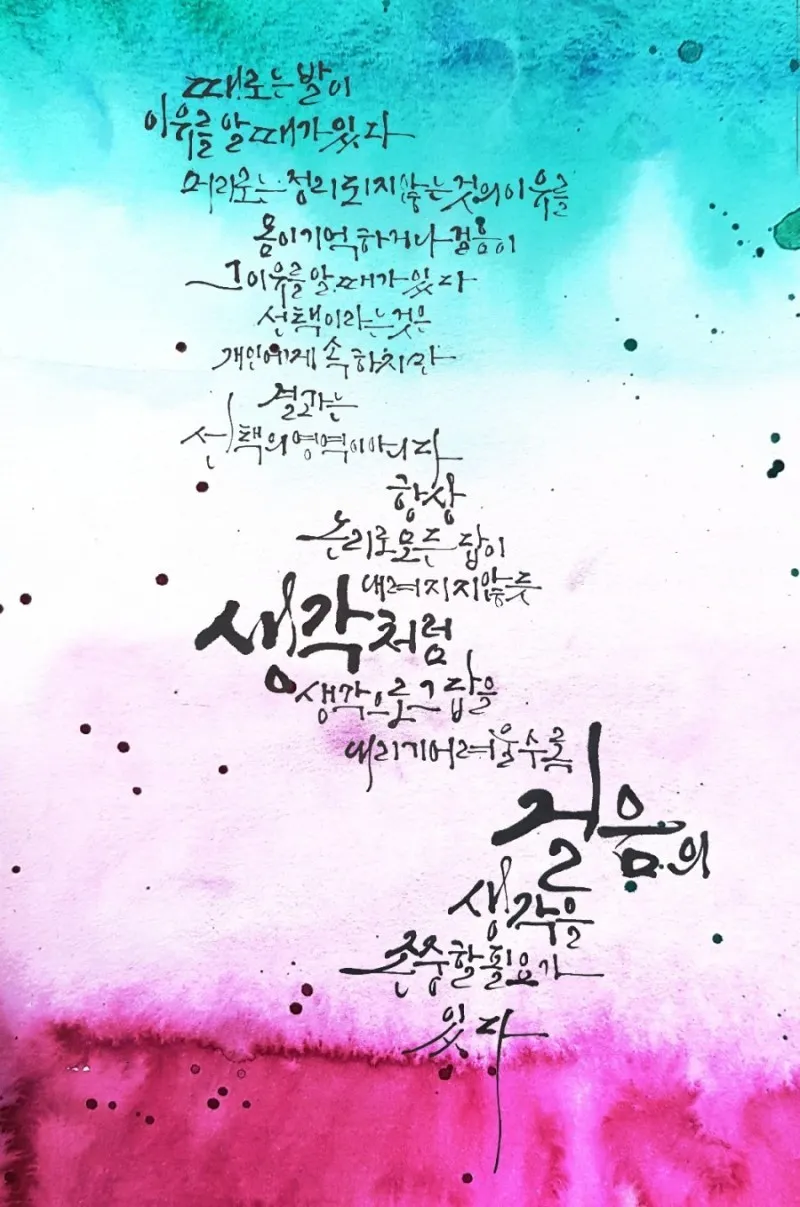 때로는 발이
이유를 알 때가 있다
머리로는 정리되지 않는 것의 이유를
몸이 기억하거나 걸음이
그 이유를 알 때가 있다
선택이라는 것은
개인에게 속하지만
결과는
선택의 영역이 아니다
항상
논리로 모든 답이
내려지지 않듯
생각처럼
생각으로 그 답을
내리기 어려울수록
걸음의
생각을
존중할 필요가
있다